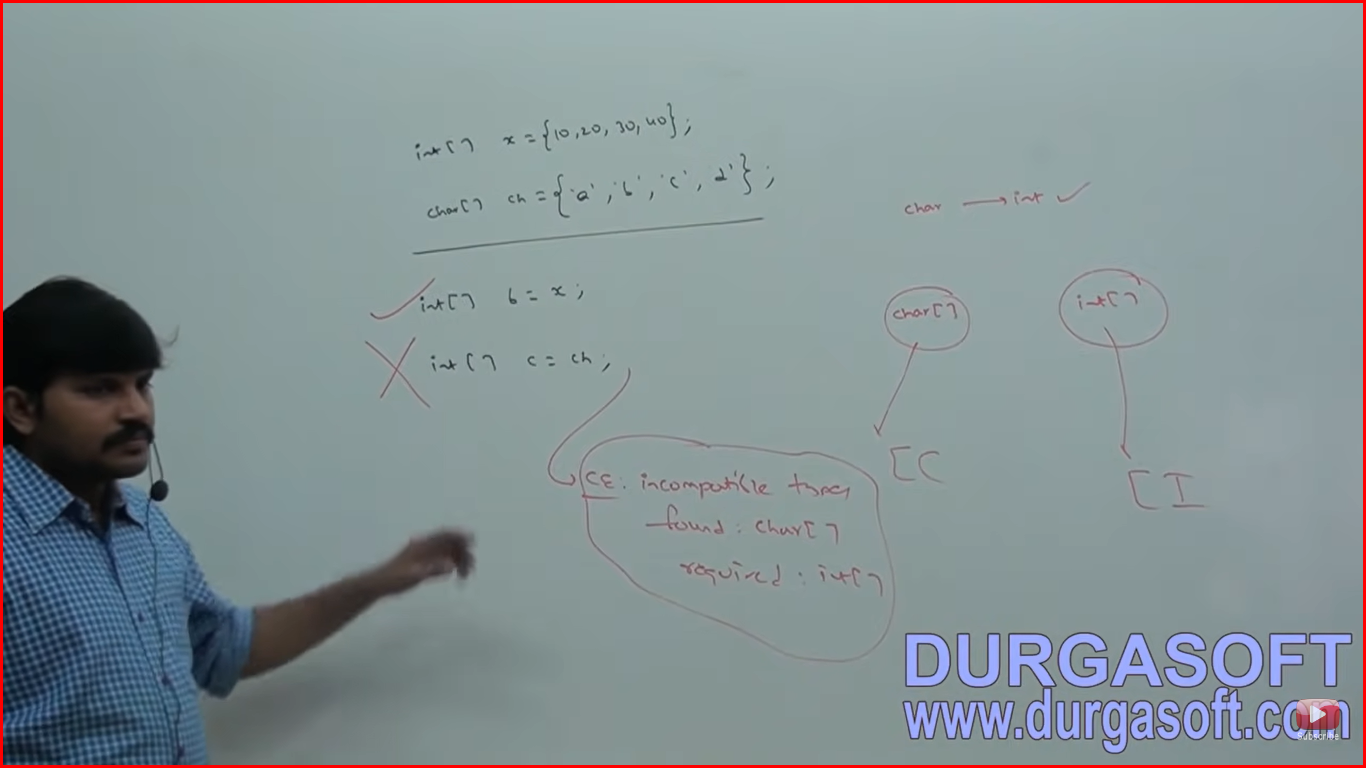 int[] x = {10, 20, 30, 40};
char[] ch = {'a', 'b', 'c', 'd'};
int[] b = x;
int[] c = ch;
CE: incompatible types
found: char[]
required: int[]
char → int ✓
char[] int[]
[C [I
DURGASOFT
www.durgasoft.com
Subscribe